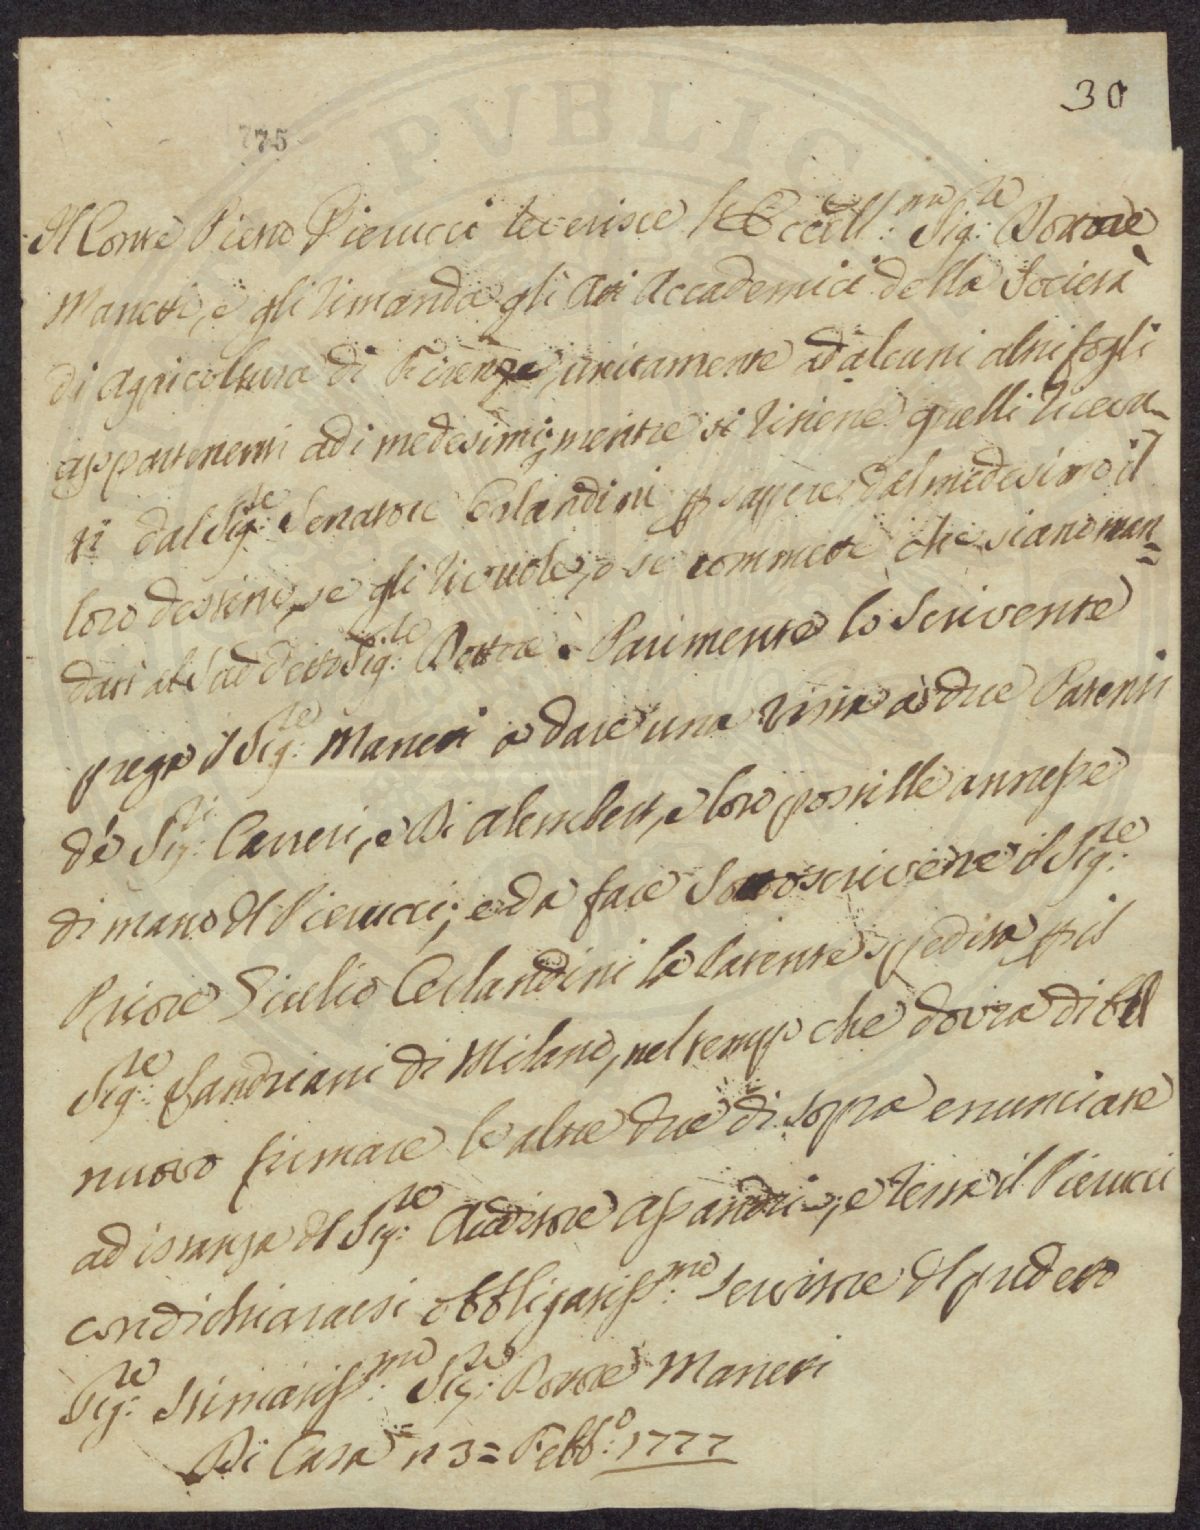 30
775
Il Conte Piero Pierucci reverisce l'Eccell:mo Sig:re Dottore
Manetti, e gli rimanda gli Atti Accademici della Società
di Agricoltura di Firenze, unitamente ad alcuni altri fogli
appartenenti ad i medesimi; mentre si ritiene quelli ricevu-
ti dal Sig:re Senatore Orlandini p sapere dal medesimo il
loro destino, se gli rivuole, o se commette che siano man=
dati al ad detto Sig:re Dottore. Parimente lo Scrivente
prega il Sig:re Manetti a dare una vista a due Patenti
de' Sig:ri Carreri, e Di Alembert, e loro postille annesse
di mano del Pierucci; e da fare Sottoscrivere il Sig:re
Priore Giulio Orlandini la Patente spedita p il
Sig:re Landriani di Milano, nel tempo che dovrà di bel
nuovo firmare le altre due di sopra enunciate
ad istanza del Sig:re Auditore ; e resta il Pierucci
con dichiararsi obbligatiss:mo Servitore del predetto
Sig:re Stimatiss:mo Sig:re Dottore Manetti
Di Casa n 3= Febb:o 1777
PVBLIC